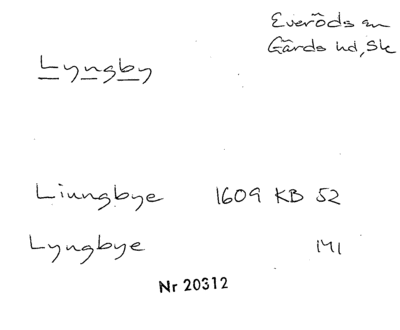 Everöds sn
Gärds hd, Sk
Lyngby
Liungbye 1609 KB 52
Lyngbye 141
Nr 20312